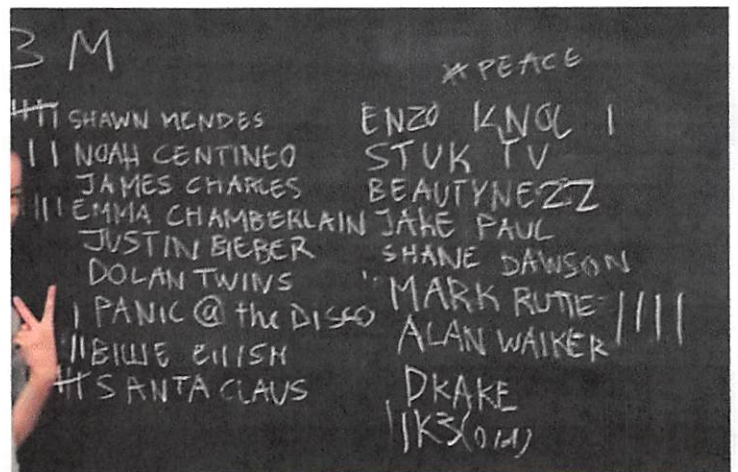 3 M
SHAWN MENDES
|| NOAH CENTINEO
JAMES CHARLES
||| EMMA CHAMBERLAIN
JUSTIN BIEBER
DOLAN TWINS
| PANIC @ the DISCO
|| BILLIE EILISH
SANTA CLAUS
* PEACE
ENZO KNOL |
STUK TV
BEAUTYNEZZ
JAKE PAUL
SHANE DAWSON
MARK RUTTE ||||
ALAN WALKER
DRAKE
|| K3 (old)